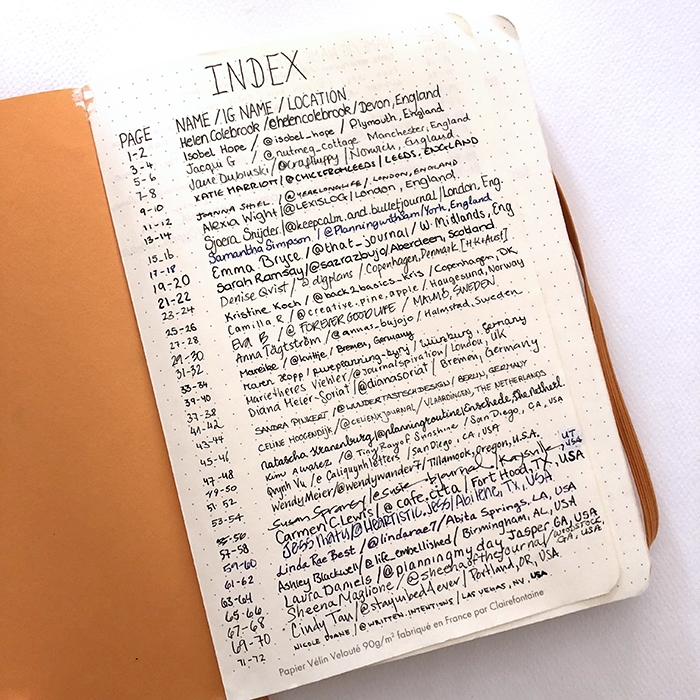 INDEX
PAGE NAME / IG NAME / LOCATION
1-2 Helen Colebrook / @helencolebrook / Devon, England
3-4 Isobel Hope / @isobel_hope / Plymouth, England
5-6 Jacqui G / @nutmeg_cottage Manchester, England
7-8 Jane / @craftuppy / Norwich, England
9-10 KATIE MARRIOTT / @CHICKFROMLEEDS / LEEDS, ENGLAND
11-12 JOANNA / @YEARLONGLIFE / LONDON, ENGLAND
13-14 Alexia Wight / @LEXISLOG / London, England.
15-16 Sjaera Snijder / @keepcalm.and.bulletjournal / London, Eng.
17-18 Samantha Simpson / @Planningwithsam / York, England
19-20 Emma Bryce / @that_journal / W. Midlands, Eng
21-22 Sarah Ramsay / @sazrazbujo / Aberdeen, Scotland
23-24 Denise Qvist / @digplans / Copenhagen, Denmark
25-26 Kristine Koch / @back2basics_kris / Copenhagen, DK
27-28 Camilla R / @creative.pine.apple / Haugesund, Norway
29-30 Eva B / @FOREVERGOODLIFE / MALMÖ, SWEDEN
31-32 Anna Tågtström / @annas_bujojo / Halmstad, Sweden
33-34 Mareike / @kritjie / Bremen, Germany
Maren Hopp / Würzburg, Germany
37-38 Marietheres Viehler / @journalspiration / London, UK
Diana Meier-Soriat / @dianasoriat / Bremen, Germany
41-42 SANDRA / @WUNDERTASTISCHDESIGN / BERLIN, GERMANY
43-44 CELINE HOOGENDIJK / @CELIENXJOURNAL / VLAARDINGEN, THE NETHERLANDS
45-46 Natascha Kranenburg / @planningroutine / Enschede, The Netherl.
47-48 Kim Alvarez / @TinyRayofSunshine / San Diego, CA, USA
49-50 Quynh Vu / @Caliquynhletters / San Diego, CA, USA
51-52 Wendy Meier / @wendywander7 / Tillamook, Oregon, U.S.A.
53-54 Susan / Kaysville UT, USA
55-56 Carmen C Lewis / @cafe.ctta / Fort Hood, TX, USA
57-58 Jess / @HEARTISTIC.JESS / Abilene, TX, USA
59-60 Linda Rae Best / @lindarae7 / Abita Springs, LA, USA
61-62 Ashley Blackwell / @life_embellished / Birmingham, AL, USA
63-64 Laura Daniels / @planningmy.day Jasper GA, USA
65-66 Sheena Maglione / @sheenaofthejournal / WOODSTOCK, GA, USA
67-68 Cindy Tan / @stayinbed4ever / Portland, OR, USA
69-70 NICOLE / @WRITTEN.INTENTIONS / LAS VEGAS, NV, USA
71-72
Papier Vélin Velouté 90g/m² fabriqué en France par Clairefontaine